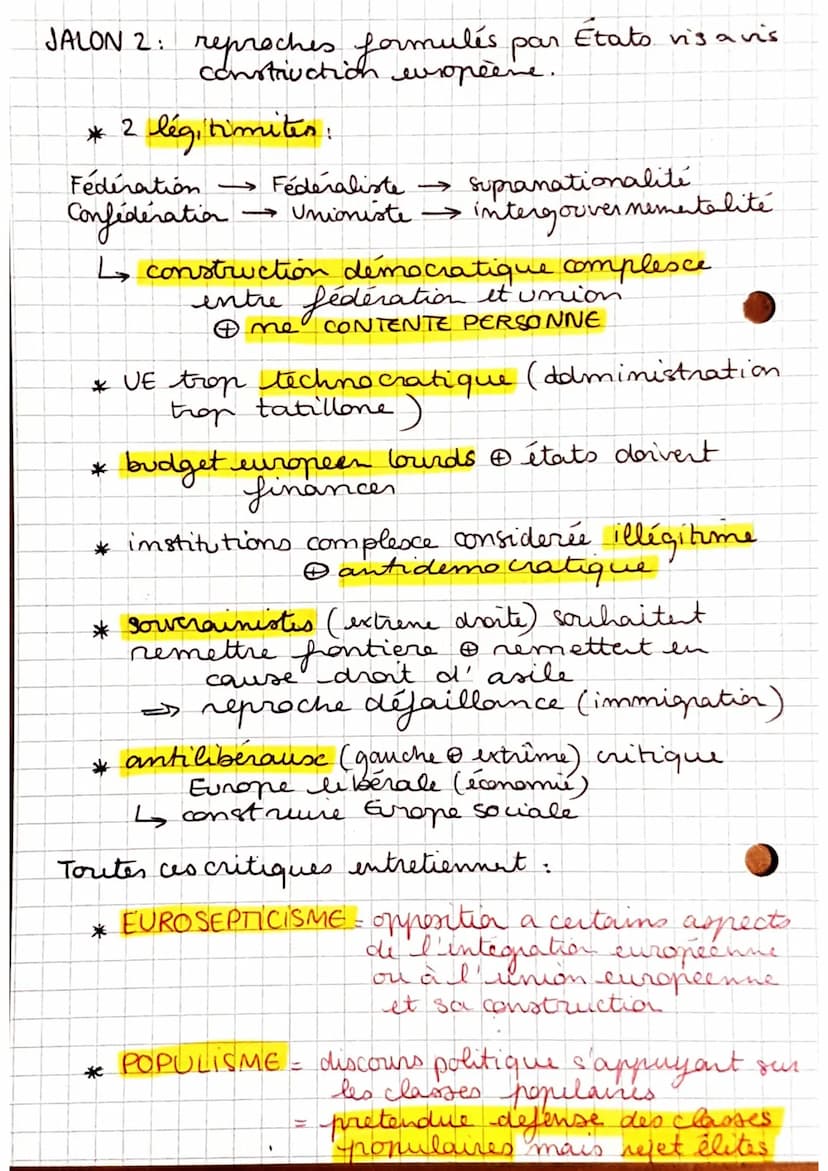 JALON 2 : reproches formulés par États vis a vis
construction européene.
* 2 légitimités :
Fédération → Fédéraliste → supranationalité
Confédération → Unioniste → intergouvernementalité
↳ construction démocratique complexe
entre fédération et union
⊕ ne CONTENTE PERSONNE
* UE trop technocratique (administration
trop tatillone)
* budget europeen lourds ⊕ états doivent
financer
* institutions complexe considerée illégitime
⊕ antidemocratique
* souverainistes (extrene droite) souhaitent
remettre frontiere ⊕ remettent en
cause droit d'asile
⇒ reproche défaillance (immigration)
* antilibéraux (gauche ⊕ extrême) critique
Europe libérale (économie)
↳ construire Europe sociale
Toutes ces critiques entretiennent :
* EUROSEPTICISME = opposition a certains aspects
de l'intégration européenne
ou à l'union européenne
et sa construction
* POPULISME = discours politique s'appuyant sur
les classes populaires
= pretendue defense des classes
populaires mais rejet élites